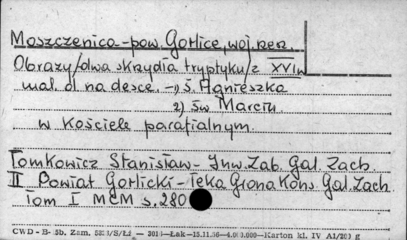 Moszczenica-pow. Gorlice, woj. rzesz.
Obrazy/dwa skrzydła tryptyku/z XVI w
mal. ol. na desce. -1) ś. Agnieszka
2) św Marcin
w Kościele parafialnym.
Tomkowicz Stanisław- Inw. Zab. Gal. Zach.
II Powiat Gorlicki- Teka Grona Kons. Gal. Zach.
Tom I MCM s. 280
CWD - B- 5b. Zam.